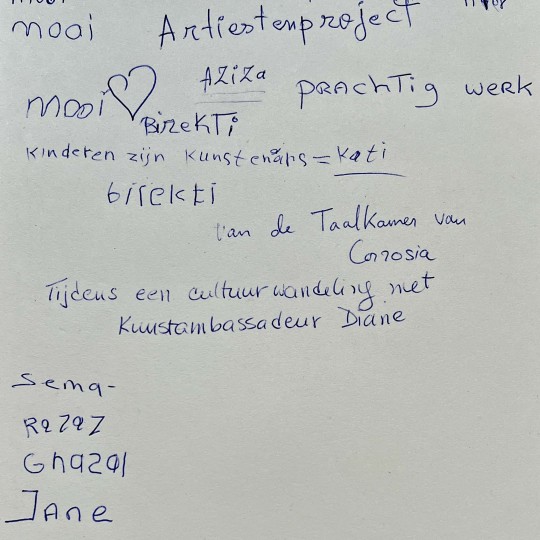 mooi Artiestenproject
AZiZa
mooi prachTig werk
BirekTi
kinderen zijn kunstenaars = kati
birekti
van de Taalkamer van
Corrosia
Tijdens een cultuurwandeling met
Kunstambassadeur Diane
Sema-
Razaz
Ghazal
Jane